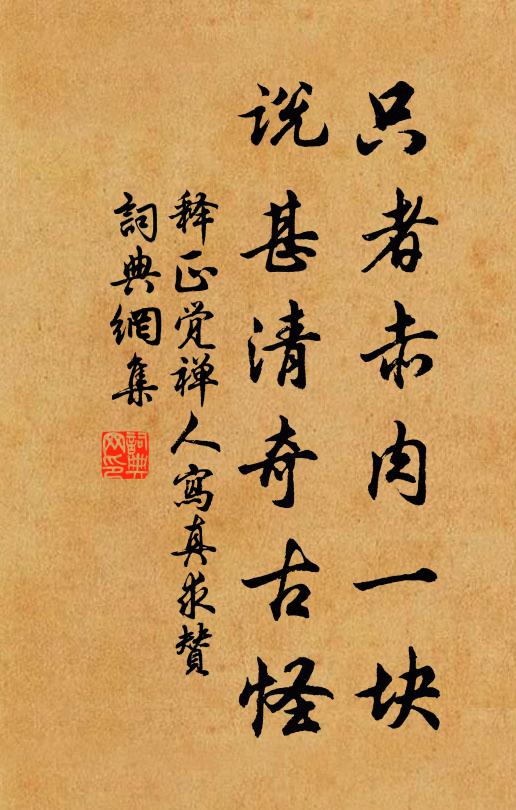 只者赤肉一块
说甚清奇古怪
释正觉禅人寫真求贊
詞典網集
詞典網印